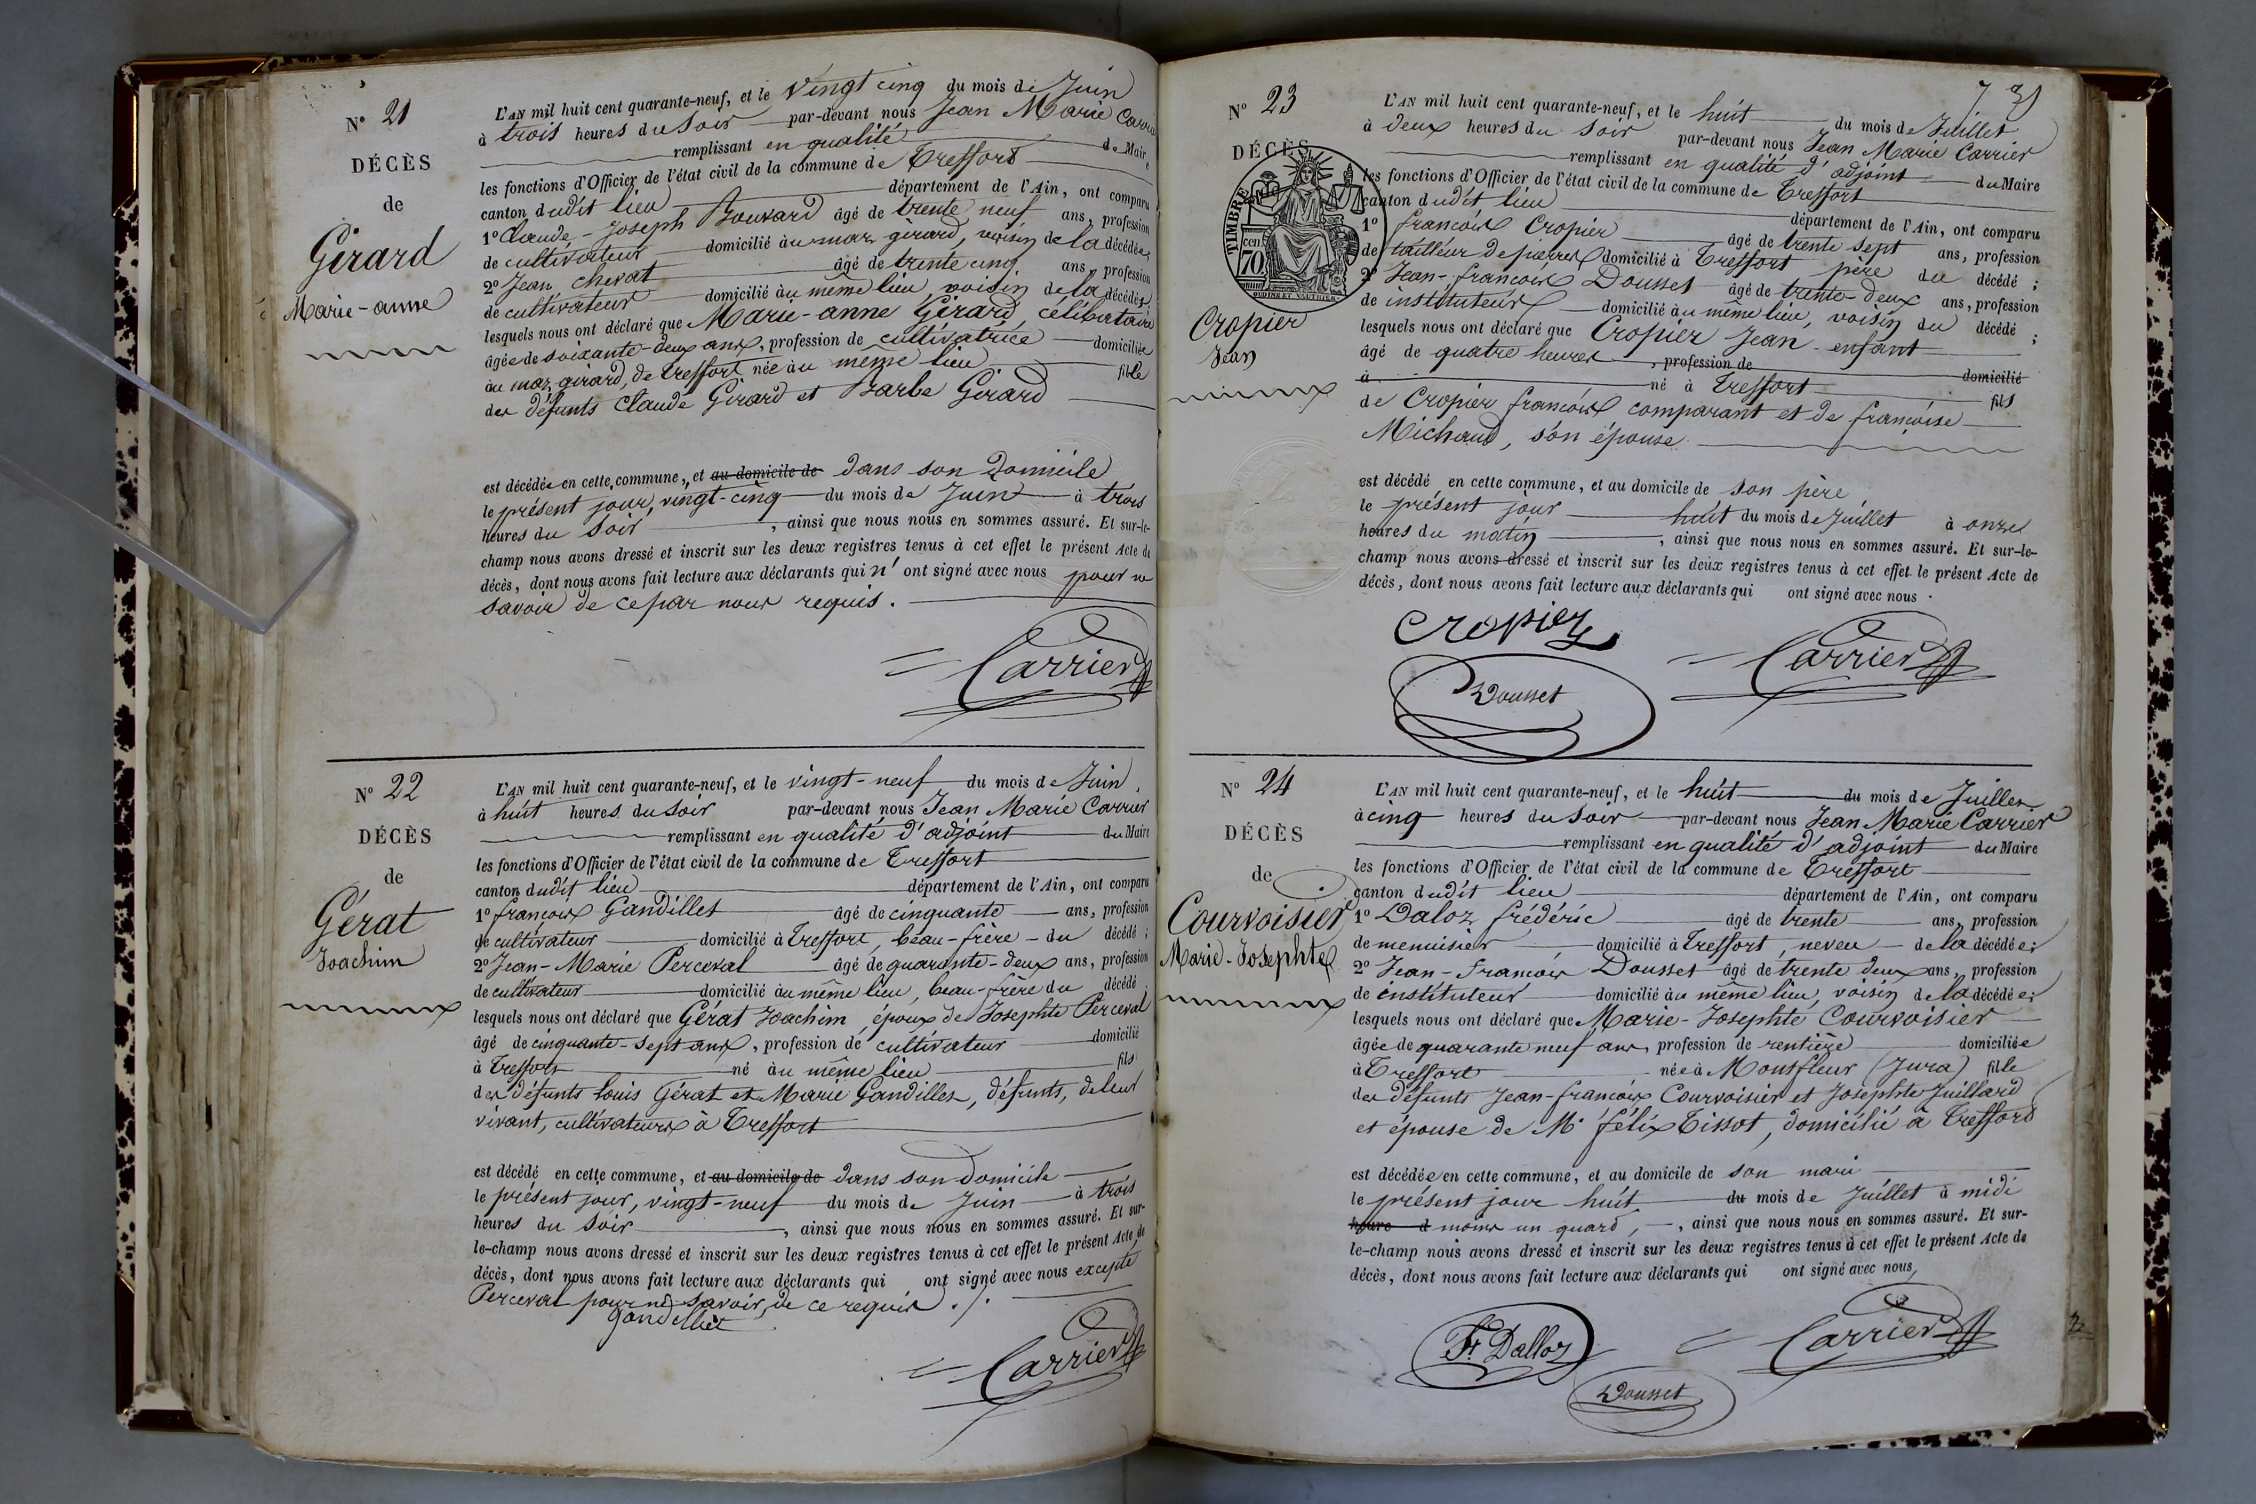 N° 21
DÉCÈS
de
Girard
Marie-anne
L'AN mil huit cent quarante-neuf, et le vingt cinq du mois de Juin
à trois heures du soir par-devant nous Jean Marie Carrier
remplissant en qualité de Maire
les fonctions d'Officier de l'état civil de la commune de Treffort
canton dudit lieu département de l'Ain, ont comparu
1° Claude-Joseph Bouvard âgé de trente neuf ans, profession
de cultivateur domicilié au maz girard, voisin de la décédée
2° Jean chevat âgé de trente cinq ans, profession
de cultivateur domicilié au même lieu voisin de la décédée,
lesquels nous ont déclaré que Marie-anne Girard, célibataire
âgée de soixante-deux ans, profession de cultivatrice domiciliée
au maz girard, de treffort née au même lieu fille
des défunts Claude Girard et Barbe Girard
est décédée en cette commune, et au domicile de dans son Domicile
le présent jour, vingt-cinq du mois de Juin à trois
heures du soir, ainsi que nous nous en sommes assuré. Et sur-le-
champ nous avons dressé et inscrit sur les deux registres tenus à cet effet le présent Acte de
décès, dont nous avons fait lecture aux déclarants qui n'ont signé avec nous pour ne
savoir de ce par nous requis.
Carrier
N° 22
DÉCÈS
de
Gérat
Joachim
L'AN mil huit cent quarante-neuf, et le vingt-neuf du mois de Juin
à huit heures du soir par-devant nous Jean Marie Carrier
remplissant en qualité d'adjoint du Maire
les fonctions d'Officier de l'état civil de la commune de Treffort
canton dudit lieu département de l'Ain, ont comparu
1° françois Gandillet âgé de cinquante ans, profession
de cultivateur domicilié à Treffort, beau-frère du décédé ;
2° Jean-Marie Perceval âgé de quarante-deux ans, profession
de cultivateur domicilié au même lieu, beau-frère du décédé
lesquels nous ont déclaré que Gérat Joachim, époux de Josephte Perceval
âgé de cinquante-sept ans, profession de cultivateur domicilié
à Treffort né au même lieu fils
des défunts Louis Gérat et Marie Gandillet, défunts, de leur
vivant, cultivateurs à Treffort
est décédé en cette commune, et au domicile de dans son domicile
le présent jour, vingt-neuf du mois de Juin à trois
heures du soir, ainsi que nous nous en sommes assuré. Et sur-
le-champ nous avons dressé et inscrit sur les deux registres tenus à cet effet le présent Acte de
décès, dont nous avons fait lecture aux déclarants qui ont signé avec nous excepté
Perceval pour ne savoir, de ce requis ./.
gandillet
Carrier
N° 23
DÉCÈS
TIMBRE
cen
70
Cropier
Jean
L'AN mil huit cent quarante-neuf, et le huit du mois de Juillet
à deux heures du soir par-devant nous Jean Marie Carrier
remplissant en qualité d'adjoint du Maire
les fonctions d'Officier de l'état civil de la commune de Treffort
canton dudit lieu département de l'Ain, ont comparu
1° françois Cropier âgé de trente sept ans, profession
de tailleur de pierres domicilié à Treffort père du décédé ;
2° Jean-françois Dousset âgé de trente-deux ans, profession
de instituteur domicilié au même lieu, voisin du décédé ;
lesquels nous ont déclaré que Cropier Jean enfant
âgé de quatre heures, profession de domicilié
à né à Treffort fils
de Cropier françois comparant et de françoise
Michaud, son épouse
est décédé en cette commune, et au domicile de son père
le présent jour huit du mois de Juillet à onze
heures du matin, ainsi que nous nous en sommes assuré. Et sur-le-
champ nous avons dressé et inscrit sur les deux registres tenus à cet effet le présent Acte de
décès, dont nous avons fait lecture aux déclarants qui ont signé avec nous.
Cropier
Carrier
Dousset
N° 24
DÉCÈS
de
Courvoisier
Marie-Josephte
L'AN mil huit cent quarante-neuf, et le huit du mois de Juillet
à cinq heures du soir par-devant nous Jean Marie Carrier
remplissant en qualité d'adjoint du Maire
les fonctions d'Officier de l'état civil de la commune de Treffort
canton dudit lieu département de l'Ain, ont comparu
1° Daloz frédéric âgé de trente ans, profession
de menuisier domicilié à Treffort, neveu de la décédée ;
2° Jean-françois Dousset âgé de trente deux ans, profession
de instituteur domicilié au même lieu, voisin de la décédée ;
lesquels nous ont déclaré que Marie-Josephte Courvoisier
âgée de quarante neuf ans, profession de rentière domiciliée
à Treffort née à Montfleur (Jura) fille
des défunts Jean-françois Courvoisier et Josephte Juillard
et épouse de Mr félix Tissot, domicilié à Treffort
est décédée en cette commune, et au domicile de son mari
le présent jour huit du mois de Juillet à midi
heure d moins un quard, ainsi que nous nous en sommes assuré. Et sur-
le-champ nous avons dressé et inscrit sur les deux registres tenus à cet effet le présent Acte de
décès, dont nous avons fait lecture aux déclarants qui ont signé avec nous,
Fr. Dalloz
Carrier
Dousset